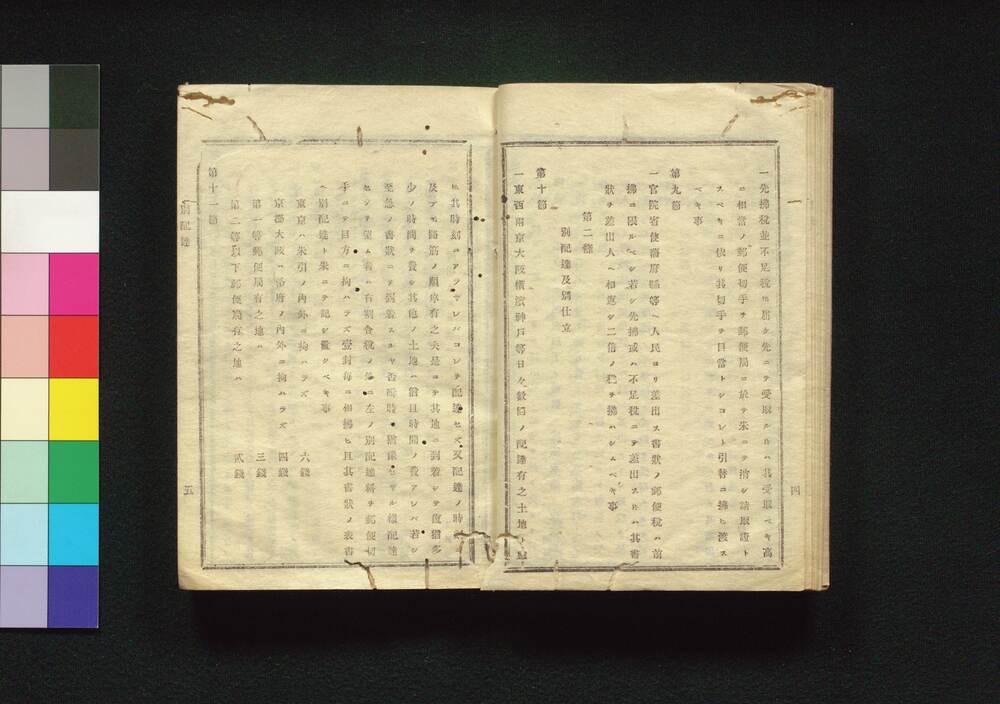 一先拂税並不足税ニ屆ク先ニテ受取ル片ハ其受取ベキ高
ニ相當ノ郵便切手ヲ郵便局ニ於テ朱ニテ消シ請取證ト
スベキニ依リ其切手ヲ目當トシコレト引替ニ拂ヒ渡ス
ベキ事
第九節
一官院省使藩府縣等ヘ人民ヨリ差出ス書狀ノ郵便税ハ前
拂ニ限ルベシ若シ先拂或ハ不足税ニテ差出ス片ハ其書
狀ヲ差出人ヘ相返シ二倍ノ税ヲ拂ハシムベキ事
第二條
別配達及別仕立
第十節
一東西兩京大阪橫濱神戸等日々數囘ノ配達有之土地ト雖
四
一
モ其時刻ニアラザレバコレヲ配達セズ又配達ノ時
及ブモ路筋ノ順序有之夫是ニテ其地ニ到着シテ復猶多
少ノ時間ヲ費シ其他ノ土地ハ尚且時間ノ費アレバ若シ
至急ノ書狀ニテ到着スルヤ否時ニ別配達
センヲ望ム者ハ有期會税ノ外ニ左ノ別配達料ヲ郵便切
手ニテ目方ニ拘ハラズ壹封每ニ相拂ヒ且其書狀ノ表書
ヘ別配達ト朱ニテ記シ置クベキ事
東京ハ朱引ノ內外ニ拘ハラズ 六錢
京都大阪ハ市府ノ內外ニ拘ハラズ 四錢
第一等郵便局有之地ハ 三錢
第二等以下郵便局有之地ハ 貳錢
第十一節
別配達
五